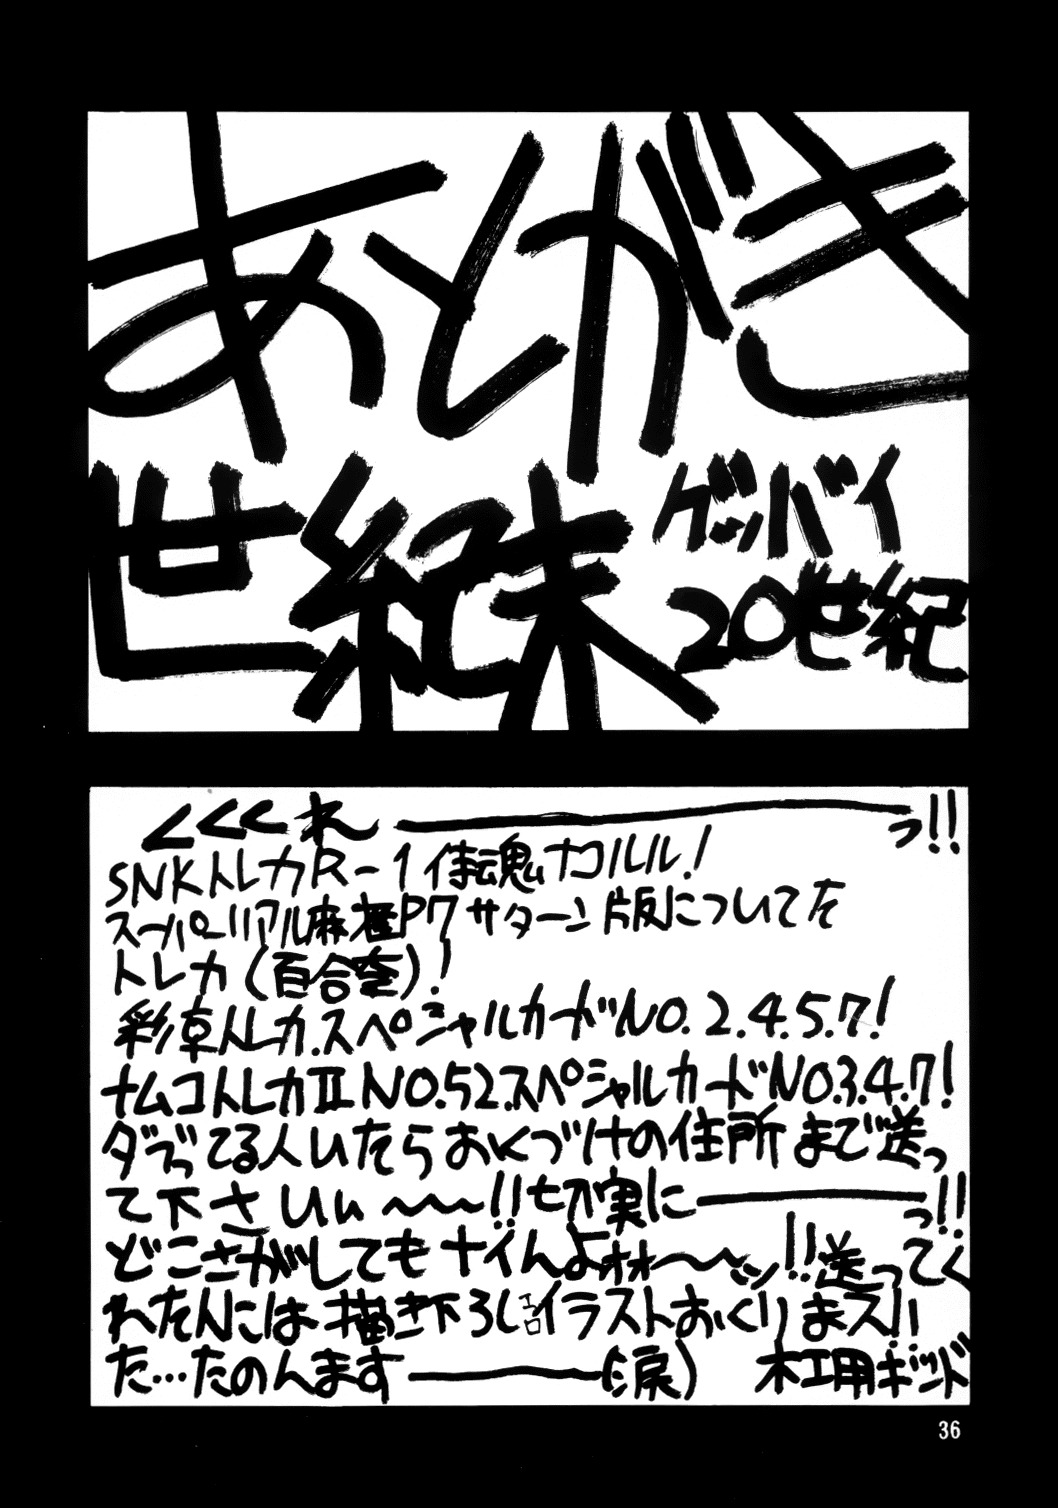 あとがき
世紀末
グッバイ
20世紀
くくくれ――――っ!!
SNKトレカR-1侍魂ナコルル!
スーパーリアル麻雀P7サターン版についてを
トレカ(百合奈)!
彩京トレカ.スペシャルカードNO.2.4.5.7!
ナムコトレカⅡNO.52.スペシャルカードNO.3.4.7!
ダブってる人いたらおくづけの住所まで送っ
て下さいぃ~~~!!切実に――――っ!!
どこさがしてもナイんよォォ~~ッ!!送ってく
れたんには描き下ろしエロイラストおくりまス!!
た…たのんます――――(涙) 木工用ボンド
36